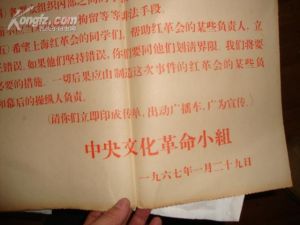 组织内部之间的
拘留等等
五)希望上海红革会的同学们，帮助红革会的某些负责人，立
错误。如果他们坚持错误，你们要同他们划清界限。我们将要
必要的措施。一切后果应由制造这次事件的红革会的某些负
和幕后的操纵人负责。
(请你们立即印成传单，出动广播车，广为宣传。)
中央文化革命小组
一九六七年一月二十九日